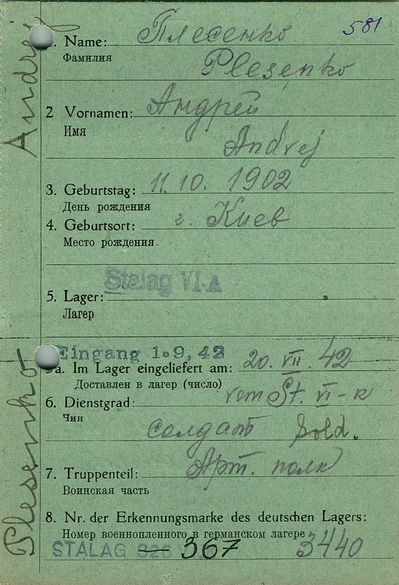 581
1. Name: Плесенко
Фамилия
Plesenko
2 Vornamen: Андрей
Имя
Andrej
3. Geburtstag: 11.10. 1902
День рождения
4. Geburtsort: г. Киев
Место рождения
Stalag VI A
5. Lager:
Лагер
Eingang 1.9.42
5a. Im Lager eingeliefert am: 20. VII. 42
Доставлен в лагер (число)
vom St. VI-K
6. Dienstgrad:
Чин
солдат Sold.
7. Truppenteil: Арт. полк
Воинская часть
8. Nr. der Erkennungsmarke des deutschen Lagers:
Номер военнопленного в германском лагере
STALAG 326 367 3440
Plesenko Andrej